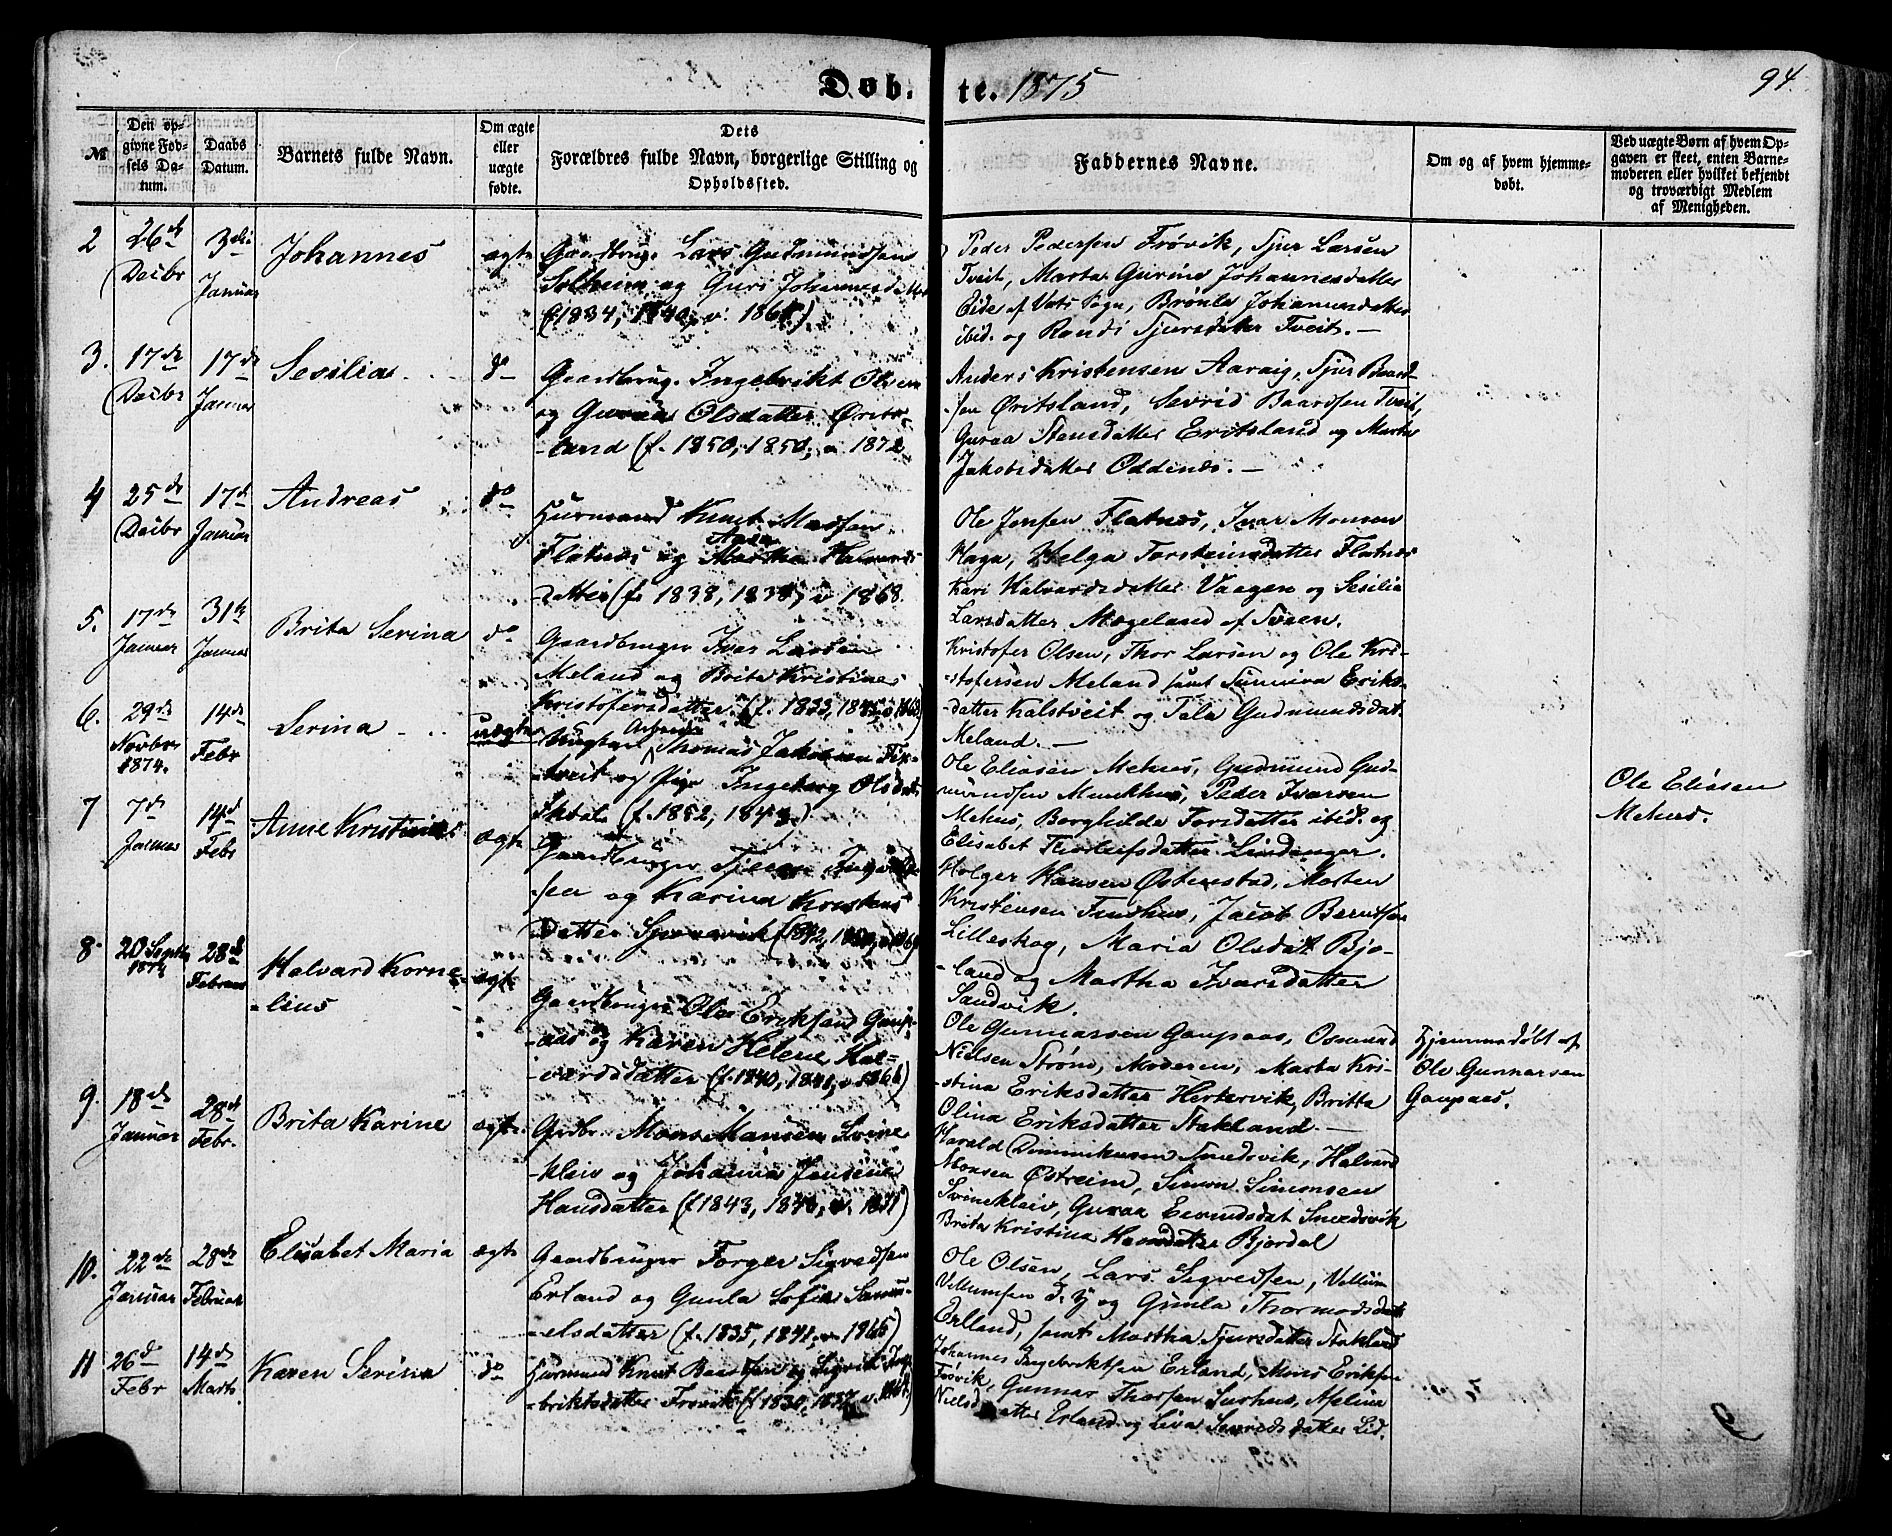 Døb. te. 1875
94.
№
Den op-
givne Fød-
sels Da-
tum.
Daabs
Datum.
Barnets fulde Navn.
Om ægte
eller
uægte
fødte.
Dets
Forældres fulde Navn, borgerlige Stilling og
Opholdssted.
Faddernes Navne.
Om og af hvem hjemme-
døbt.
Ved uægte Børn af hvem Op-
gaven er skeet, enten Barne-
moderen eller hvilket bekjendt
og troværdigt Medlem
af Menigheden.
2
26
Decbr
3die
Januar
Johannes
ægte
Gaardbrug. Lars Gudmundsen
Solheim og Guri Johannesdatter
(f. 1834, 1840, v. 1868)
Peder Pedersen Frøvik, Sjur Larsen
Tveit, Marta Gurine Johannesdatter
Eide af Vats Sogn, Brønla Johannesdatter
ibid. og Randi Sjursdatter Tveit. —
3.
17de
Decbr
17de
Januar
Sesilia
do
Gaardbrug. Ingebrikt Olsen
og Guraa Olsdatter Ørits-
-land (f. 1850, 1850, v 1872
Anders Kristensen Aarvig, Sjur Baard-
-sen Øritsland, Sevrid Baardsen Tveit,
Guraa Stensdatter Eritsland og Marta
Jakobsdatter Oddenes. —
4
25de
Decbr
17d
Januar
Andreas
do
Huusmand Knut Madsen
Flatnes og Martha Halvards
datter (f. 1838, 1838, v 1868.
Ole Jensen Flatnes, Ivar Monsen
Haga, Helga Torsteinsdatter Flatnes
Kari Halvardsdatter Vaagen og Sesilia
Larsdatter Mægeland af Sveen.
5.
17de
Januar
31te
Januar
Brita Serina
do
Gaardbruger Ivar Larsen
Meland og Brita Kristine
Kristofersdatter. (f. 1833, 1845, v 1863)
Kristofer Olsen, Thor Larsen og Ole Kri-
-stofersen Meland samt Sunniva Eriks-
-datter Kalstveit og Tala Gudmundsdat.
Meland. —
6.
29de
Novbr
1874.
14de
Febr
Serina
uægte
Ungkar Thomas Jakobsen
-tveit og Pige Ingeborg Olsdat.
(f. 1852, 1843.)
Ole Eliasen Mehus, Gudmund Gud-
mundsen Munkhus, Peder Ivarsen
Mehus, Borghilda Torsdatter ibid. og
Elisabet Thorleifsdatter Lindanger.
Ole Eliasen
Mehus.
7
7de
Januar
14d
Febr
Anne Kristine
ægte
Gaardbruger
sen og Karina Kristens
datter
Holger Hansen Østenstad, Morten
Kristensen Finshus, Jacob Berntsen
Lilleskog, Maria Olsdat Bjo-
-land og Martha Ivarsdatter
Sandvik.
8
20 Septbr
1874
28de
Februar
Halvard Korne-
-lius
ægte
Gaardbruger Ole Eriksen Gaup-
-aas og Karen Helene Hal-
vardsdatter (f. 1840, 1841, v 1866)
Ole Gunnarsen Gaupaas, Osmund
Nielsen Strøm, Moderen, Marta Kri-
-stina Eriksdatter Herkervik, Britta
Olina Eriksdatter Stakland. —
Hjemmedøbt af
Ole Gunnarsen
Gaupaas.
9.
18de
Januar
28de
Febr.
Brita Karine
ægte
Grdbr Mons Mansen Svine
-kleiv og Johanna Jensine
Hansdatter (f 1843, 1840, v. 1871)
Harald Dominikusen Smedsvik, Halvard
Monsen Østreim, Simon Simonsen
Svinekleiv, Guraa Eevindsdat Smedsvik
Brita Kristina Hansdatter Bjordal
10.
22de
Januar
28de
Februar
Elisabet Maria
ægte
Gaardbruger Torger Sigvedsen
Erland og Gunla Sofie Samu-
-elsdatter (f. 1835, 1841, v 1865)
Ole Olsen, Lars Sigvedsen, Vellum
Vellumsen d. y og Gunla Thormodsdat
Erland, samt Martha Sjursdatter Stakland
11
26d
Febr
14de
Marts
Karen Serina
do
Huusmand Knut Baardsen og Sigrid Inge
-briktsdatter Frøvik (f 1830, 1837 v. 1861)
Johannes Ingebrektsen Erland, Mons Eriksen
Frøvik, Gunnar Thorsen Surhus, Aplina
Nielsdatter Erland og Liva Sevredsdatter Lid.